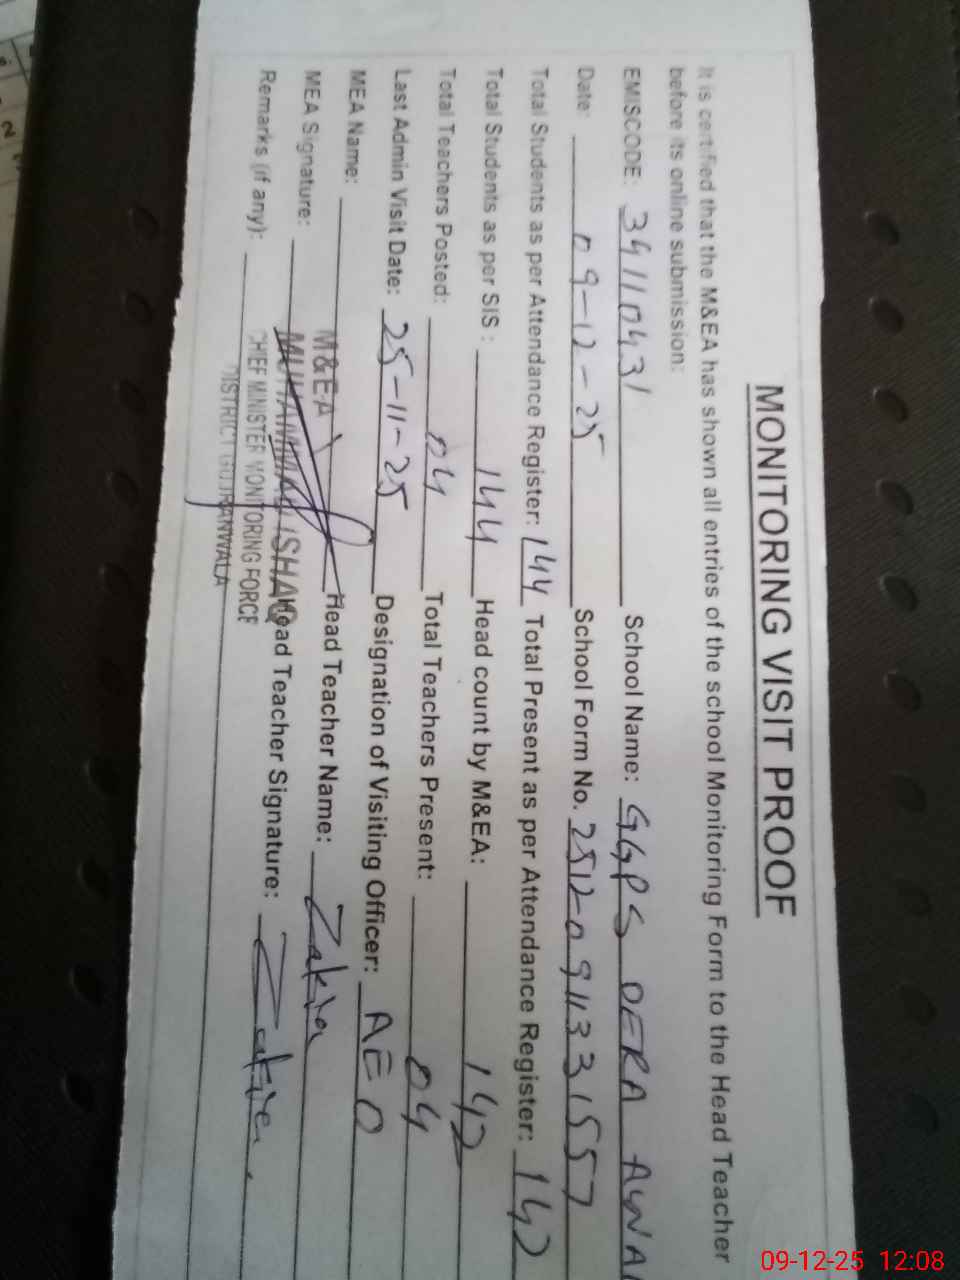 MONITORING VISIT PROOF
It is certified that the M&EA has shown all entries of the school Monitoring Form to the Head Teacher
before its online submission:
EMISCODE: 34110431 School Name: GGPS DERA AWA
Date: 09-12-25 School Form No. 25120911331557
Total Students as per Attendance Register: 144 Total Present as per Attendance Register: 142
Total Students as per SIS : 144 Head count by M&EA: 142
Total Teachers Posted: 04 Total Teachers Present: 04
Last Admin Visit Date: 25-11-25 Designation of Visiting Officer: AEO
MEA Name: M&EA Head Teacher Name: Zakia
MEA Signature: MUHAMMAD ISHAQ Head Teacher Signature: Zakia
Remarks (if any): CHIEF MINISTER MONITORING FORCE
DISTRICT GUJRANWALA
09-12-25 12:08